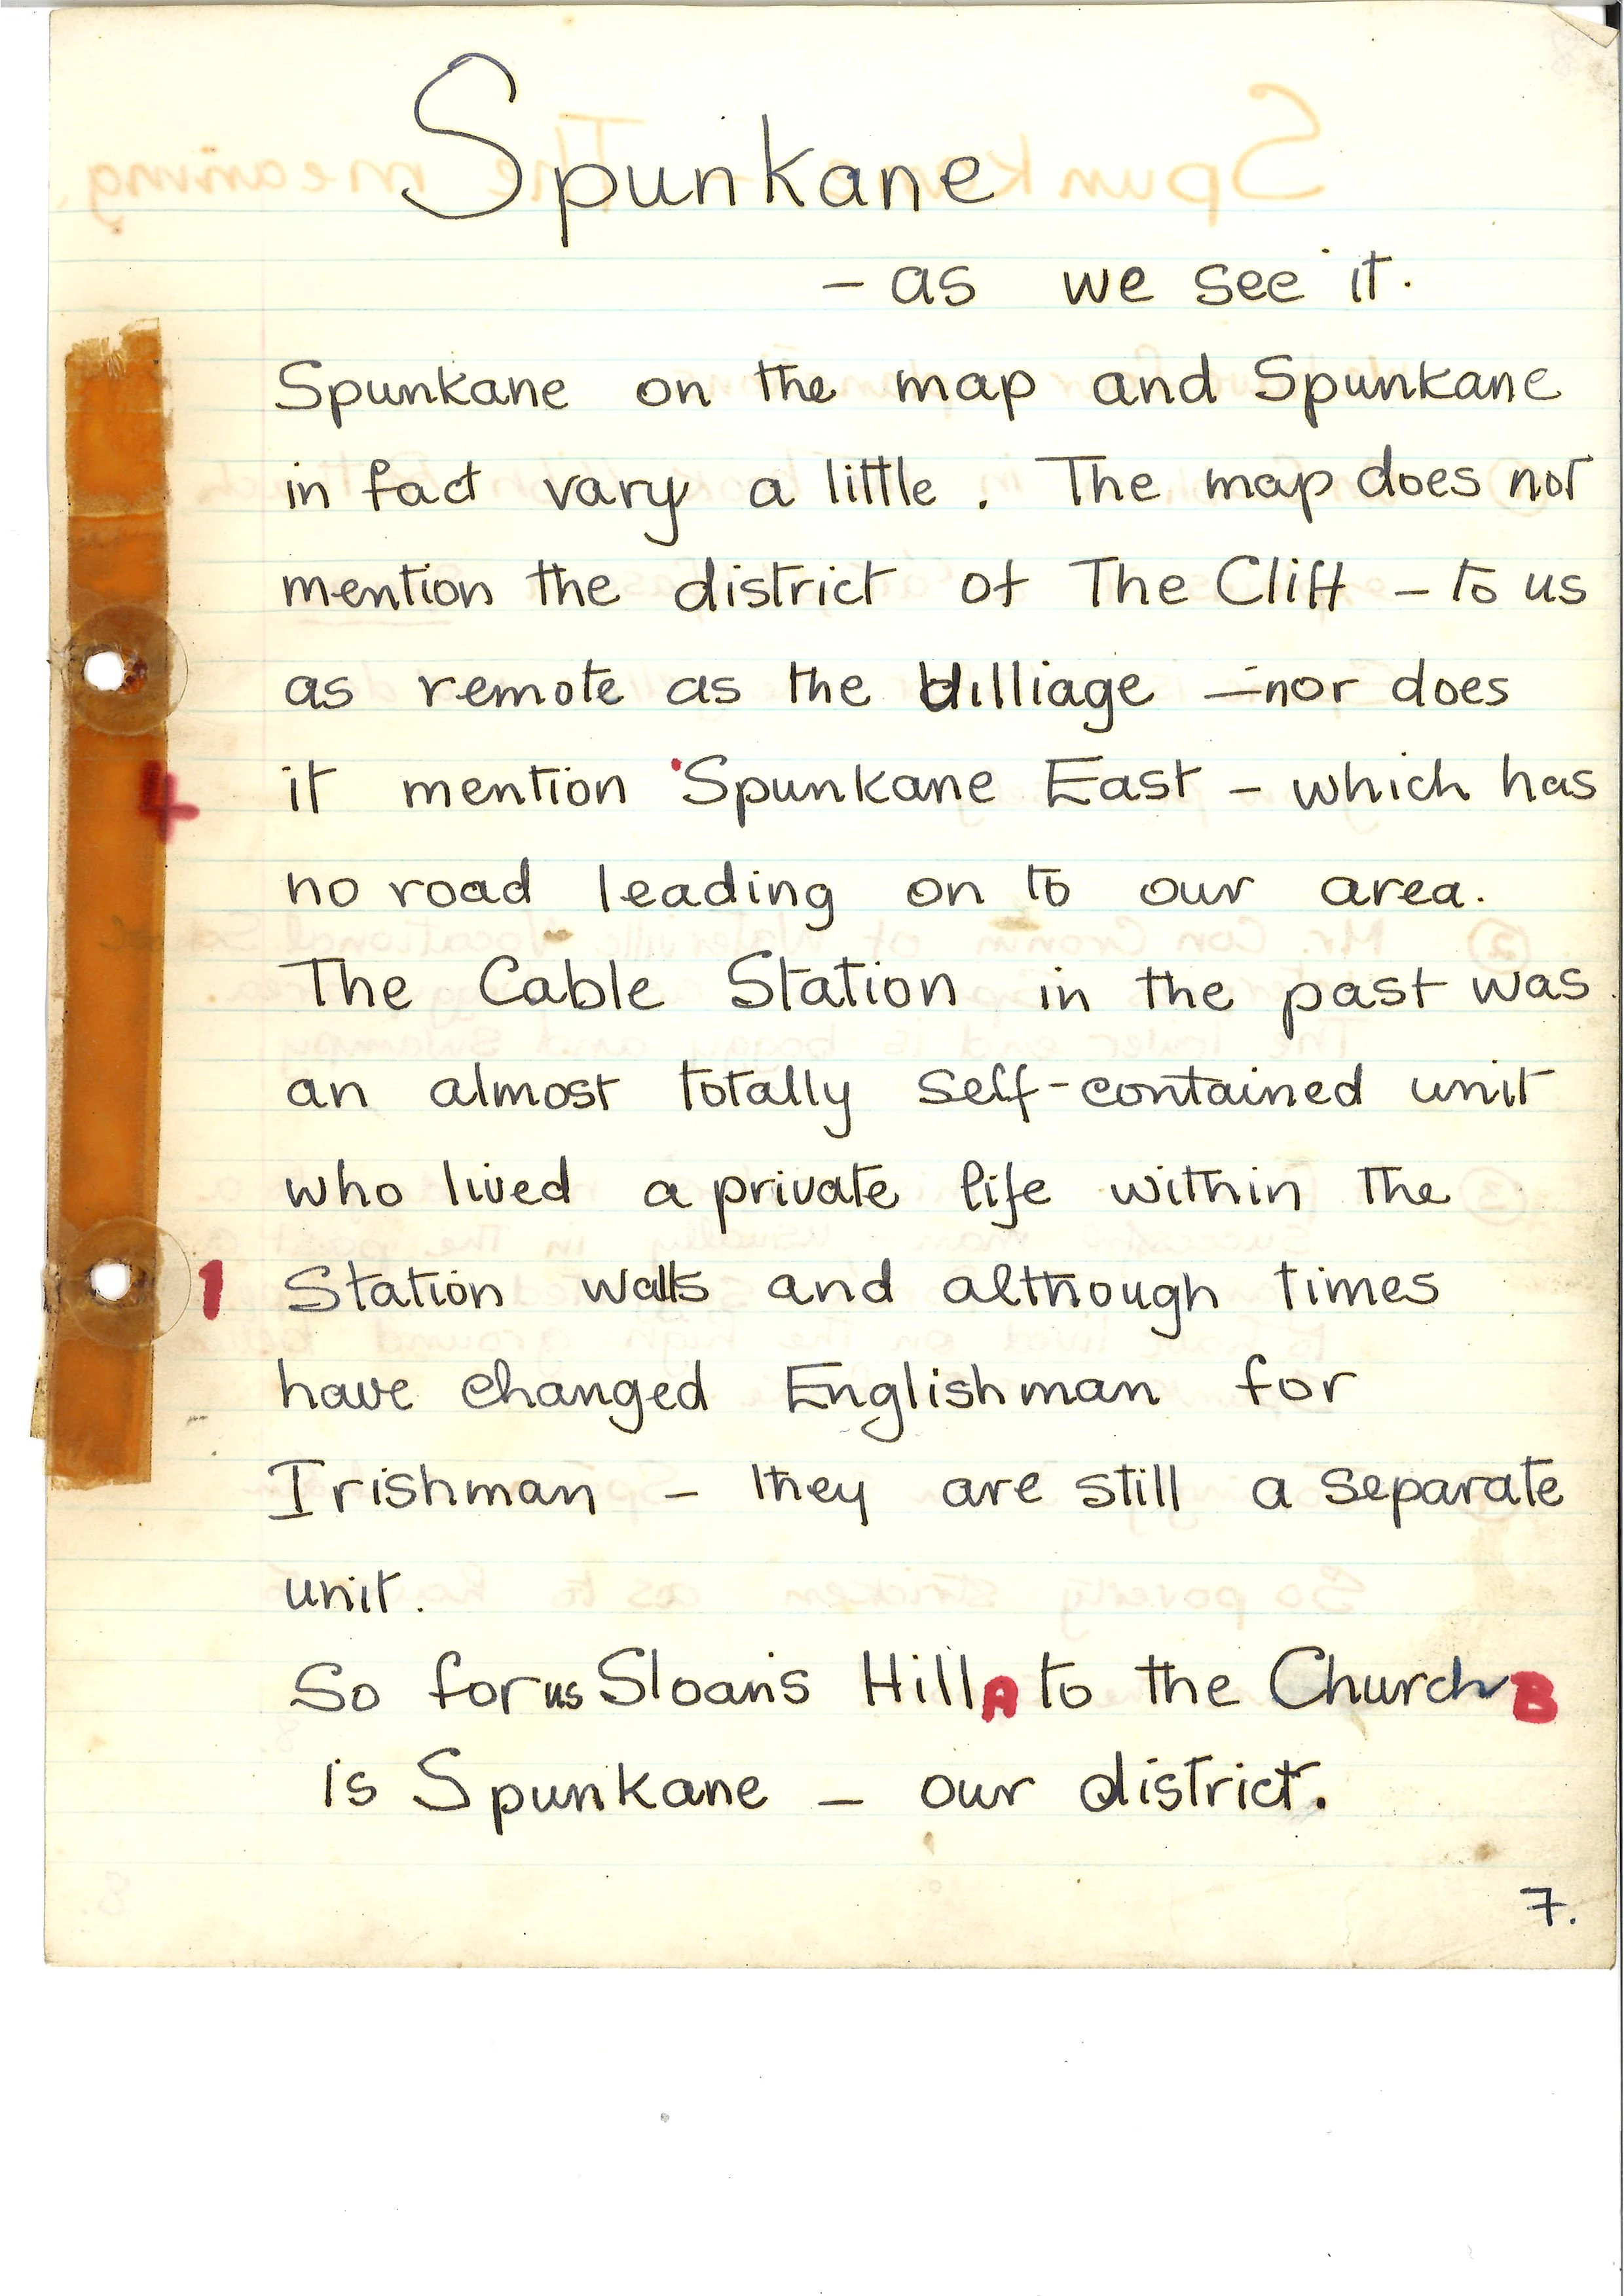 Spunkane
- as we see it.
Spunkane on the map and Spunkane
in fact vary a little. The map does not
mention the district of The Cliff - to us
as remote as the Villiage - nor does
4 it mention Spunkane East - which has
no road leading on to our area.
The Cable Station in the past was
an almost totally self-contained unit
who lived a private life within the
1 Station walls and although times
have changed Englishman for
Irishman - they are still a separate
unit.
So for us Sloan's Hill A to the Church B
is Spunkane - our district.
7.